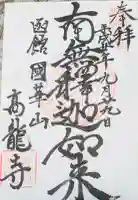 奉拝
九月廿九日
南無釈迦如来
函館 國華山
高龍寺